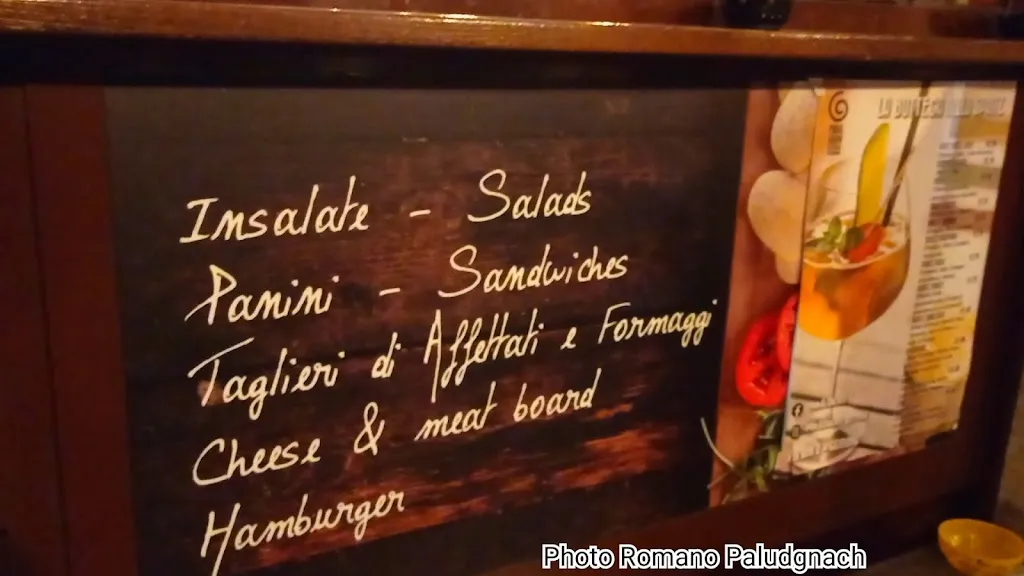 Insalate - Salads
Panini - Sandwiches
Taglieri di Affettati e Formaggi
Cheese & meat board
Hamburger
LA BOTTEGA
Photo Romano Paludgnach